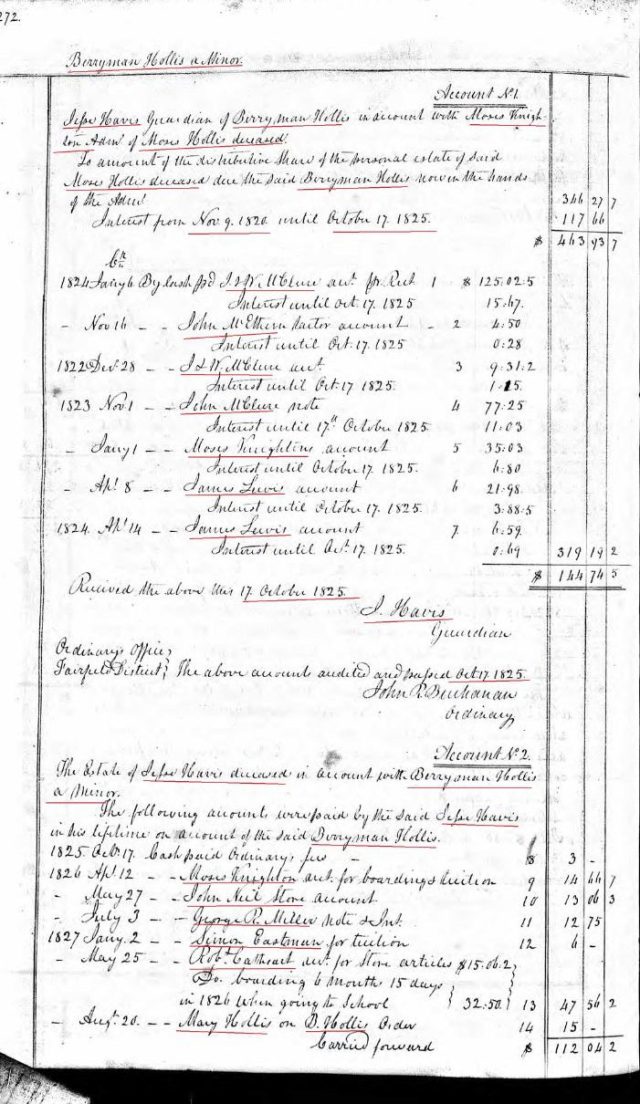 272.
Berryman Hollis a Minor.
Account No 1
Jesse Havis Guardian of Berryman Hollis in account with Moses Knigh-
ton Admr of Moses Hollis deceased.
To amount of the distributive share of the personal estate of said
Moses Hollis deceased due the said Berryman Hollis now in the hands
of the Admr 346 27 7
Interest from Nov 9. 1820 until October 17. 1825. 117 66
$ 463 93 7
Cr
1824 Jany 6 By Cash pd J & W. McClure acct pr Rect 1 $ 125.02.5
Interest until Oct. 17. 1825 15.47.
- Nov 16 - - John McEthern tailor account - 2 4.50
Interest until Oct. 17. 1825 0.28
1822 Decr 28 - - J & W. McClure acct. 3 9.31.2
Interest until Oct 17 1825. 1.15.
1823 Nov 1 - - John McClure note 4 77.25
Interest until 17th October 1825 11.03
- Jany 1 - - Moses Knightins account 5 35.03
Interest until October 17. 1825. 6.80
- Apl 8 - - James Lewis account 6 21.98.
Interest until October 17. 1825. 3.88.5
1824. Apl 14 - - James Lewis account 7 6.59.
Interest until Oct. 17. 1825. 0.49 319 19 2
$ 144 74 5
Received the above this 17 October 1825.
J. Havis
Guardian
Ordinary's Office,
Fairfield District, The above accounts audited and passed Oct 17. 1825.
John R. Buchanan
Ordinary
Account No 2.
The Estate of Jesse Havis deceased in account with Berryman Hollis
a Minor.
The following accounts were paid by the said Jesse Havis
in his lifetime on account of the said Berryman Hollis.
1825 Octr 17. Cash paid Ordinary's fees - 8 3 -
1826 Apl 12 - - Moses Knighton act. for boarding & tuition 9 14 66 7
- May 27 - John Neil Store account 10 13 06 3
- July 3 - - George R. Miller Note & Int. 11 12 75
1827 Jany. 2 - - Simon Eastman for tuition 12 6 -
- May 25 - - Robt Cathcart act. for Store articles $15.06.2
Do. boarding 6 months 15 days
in 1826 when going to School 32.50 13 47 56 2
- Augt 20. - - Mary Hollis on D. Hollis Order 14 15 -
Carried forward $ 112 04 2